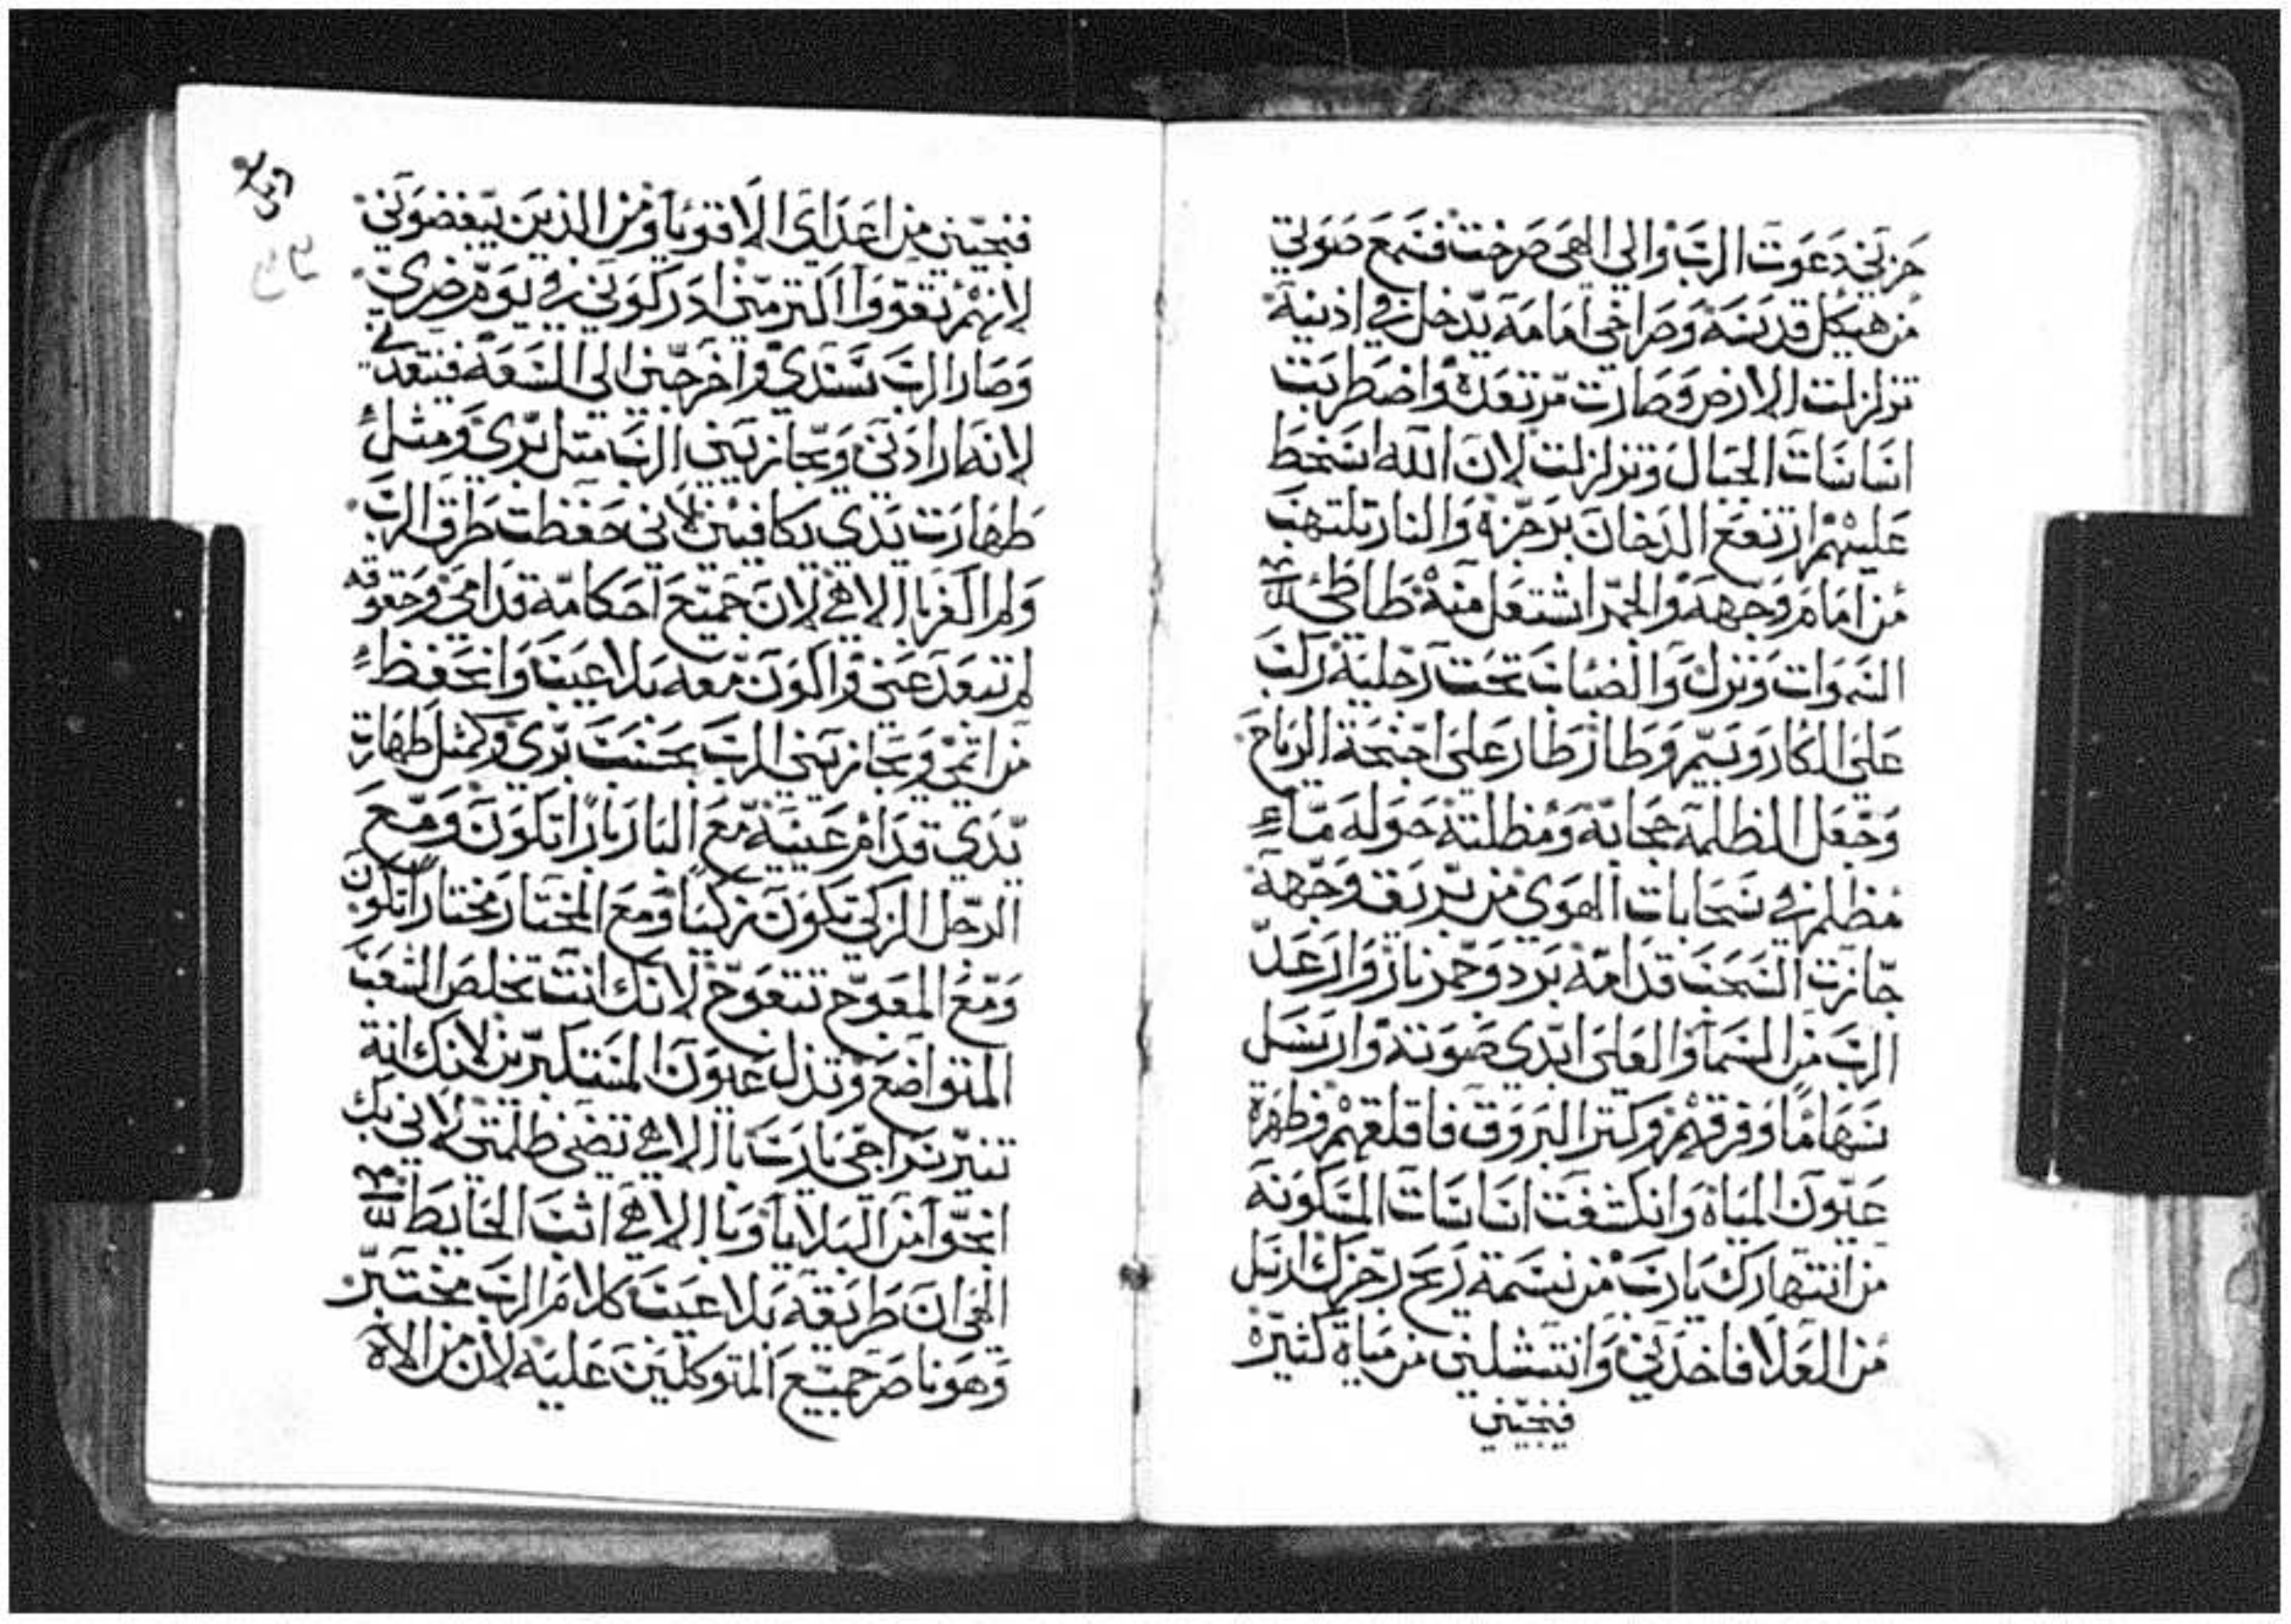 حزني دعوت الرب والي الهي صرخت فسمع صوتي
من هيكل قدسه وصراخي امامه يدخل في اذنيه
تزلزلت الارض وصارت مرتعدة واضطربت
اساسات الجبال وتزلزلت لان الله اسخط
عليهم ارتفع الدخان برجزه والنار تلتهب
من امام وجهه والجمر اشتعل منه طاطي
السموات ونزل والضباب تحت رجليه ركب
علي الكاروبيم وطار طار علي اجنحة الرياح
وجعل الظلمه حجابه ومظلته حوله ماء
مظلم في سحابات الهوي من بريق وجهه
جازت السحب قدامه برد وجمر نار وارعد
الرب من السما والعلي ابدي صوته وارسل
سهاما وفرقهم وكتر البروق فاقلقهم وظهرة
عيون المياه وانكشفت اساسات المسكونه
من انتهارك يارب من نسمة ريح رجزك ارسل
من العلا فاخدني وانتشلني من مياة كثيرة
فينجيني
فنجيني من اعداي الاقويا ومن الذين يبغضوني
لانهم تقووا اكتر مني ادركوني في يوم ضري
وصار الرب سندي واخرجني الي السعه فينقدني
لانه ارادني ويجازيني الرب مثل بري ومثل
طهارت يدي يكافيني لاني حفظت طرق الرب
ولم اكفر بالاهي لان جميع احكامه قدامي وحقوقه
لم تبعد عني واكون معه بلا عيب واتحفظ
من اتمي ويجازيني الرب بحسب بري وكمثل طهارت
يدي قدام عينيه مع البار بارا تكون ومع
الرجل الزكي تكون زكيا ومع المختار مختارا تكون
ومع المعوج تتعوج لانك انت تخلص الشعب
المتواضع وتذل عيون المستكبرين لانك انة
تنير سراجي يارب يا الاهي تضي ظلمتي لاني بك
انجوا من البلايا وبالاهي اثب الحايط
الهي ان طريقه بلا عيب كلام الرب مختبر
وهو ناصر جميع المتوكلين عليه لان من الاة